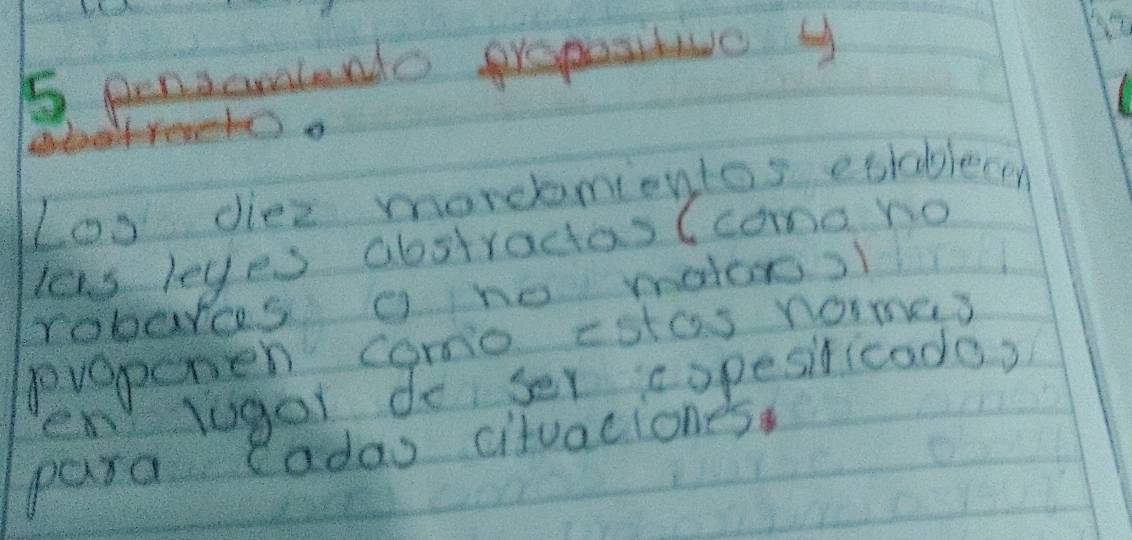 5 pensamiento propositivo y
abstracto.
Los diez mordamientos establecen
las leyes abstractas (como no
robaras o no mataras)
proponen como estas normas
en lugar de ser espesificados
para cadas cituaciones.